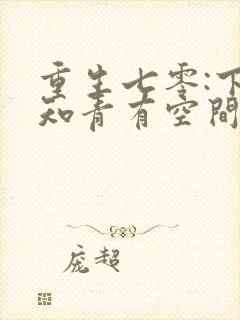 重生七零:下
知青有空間
庞超